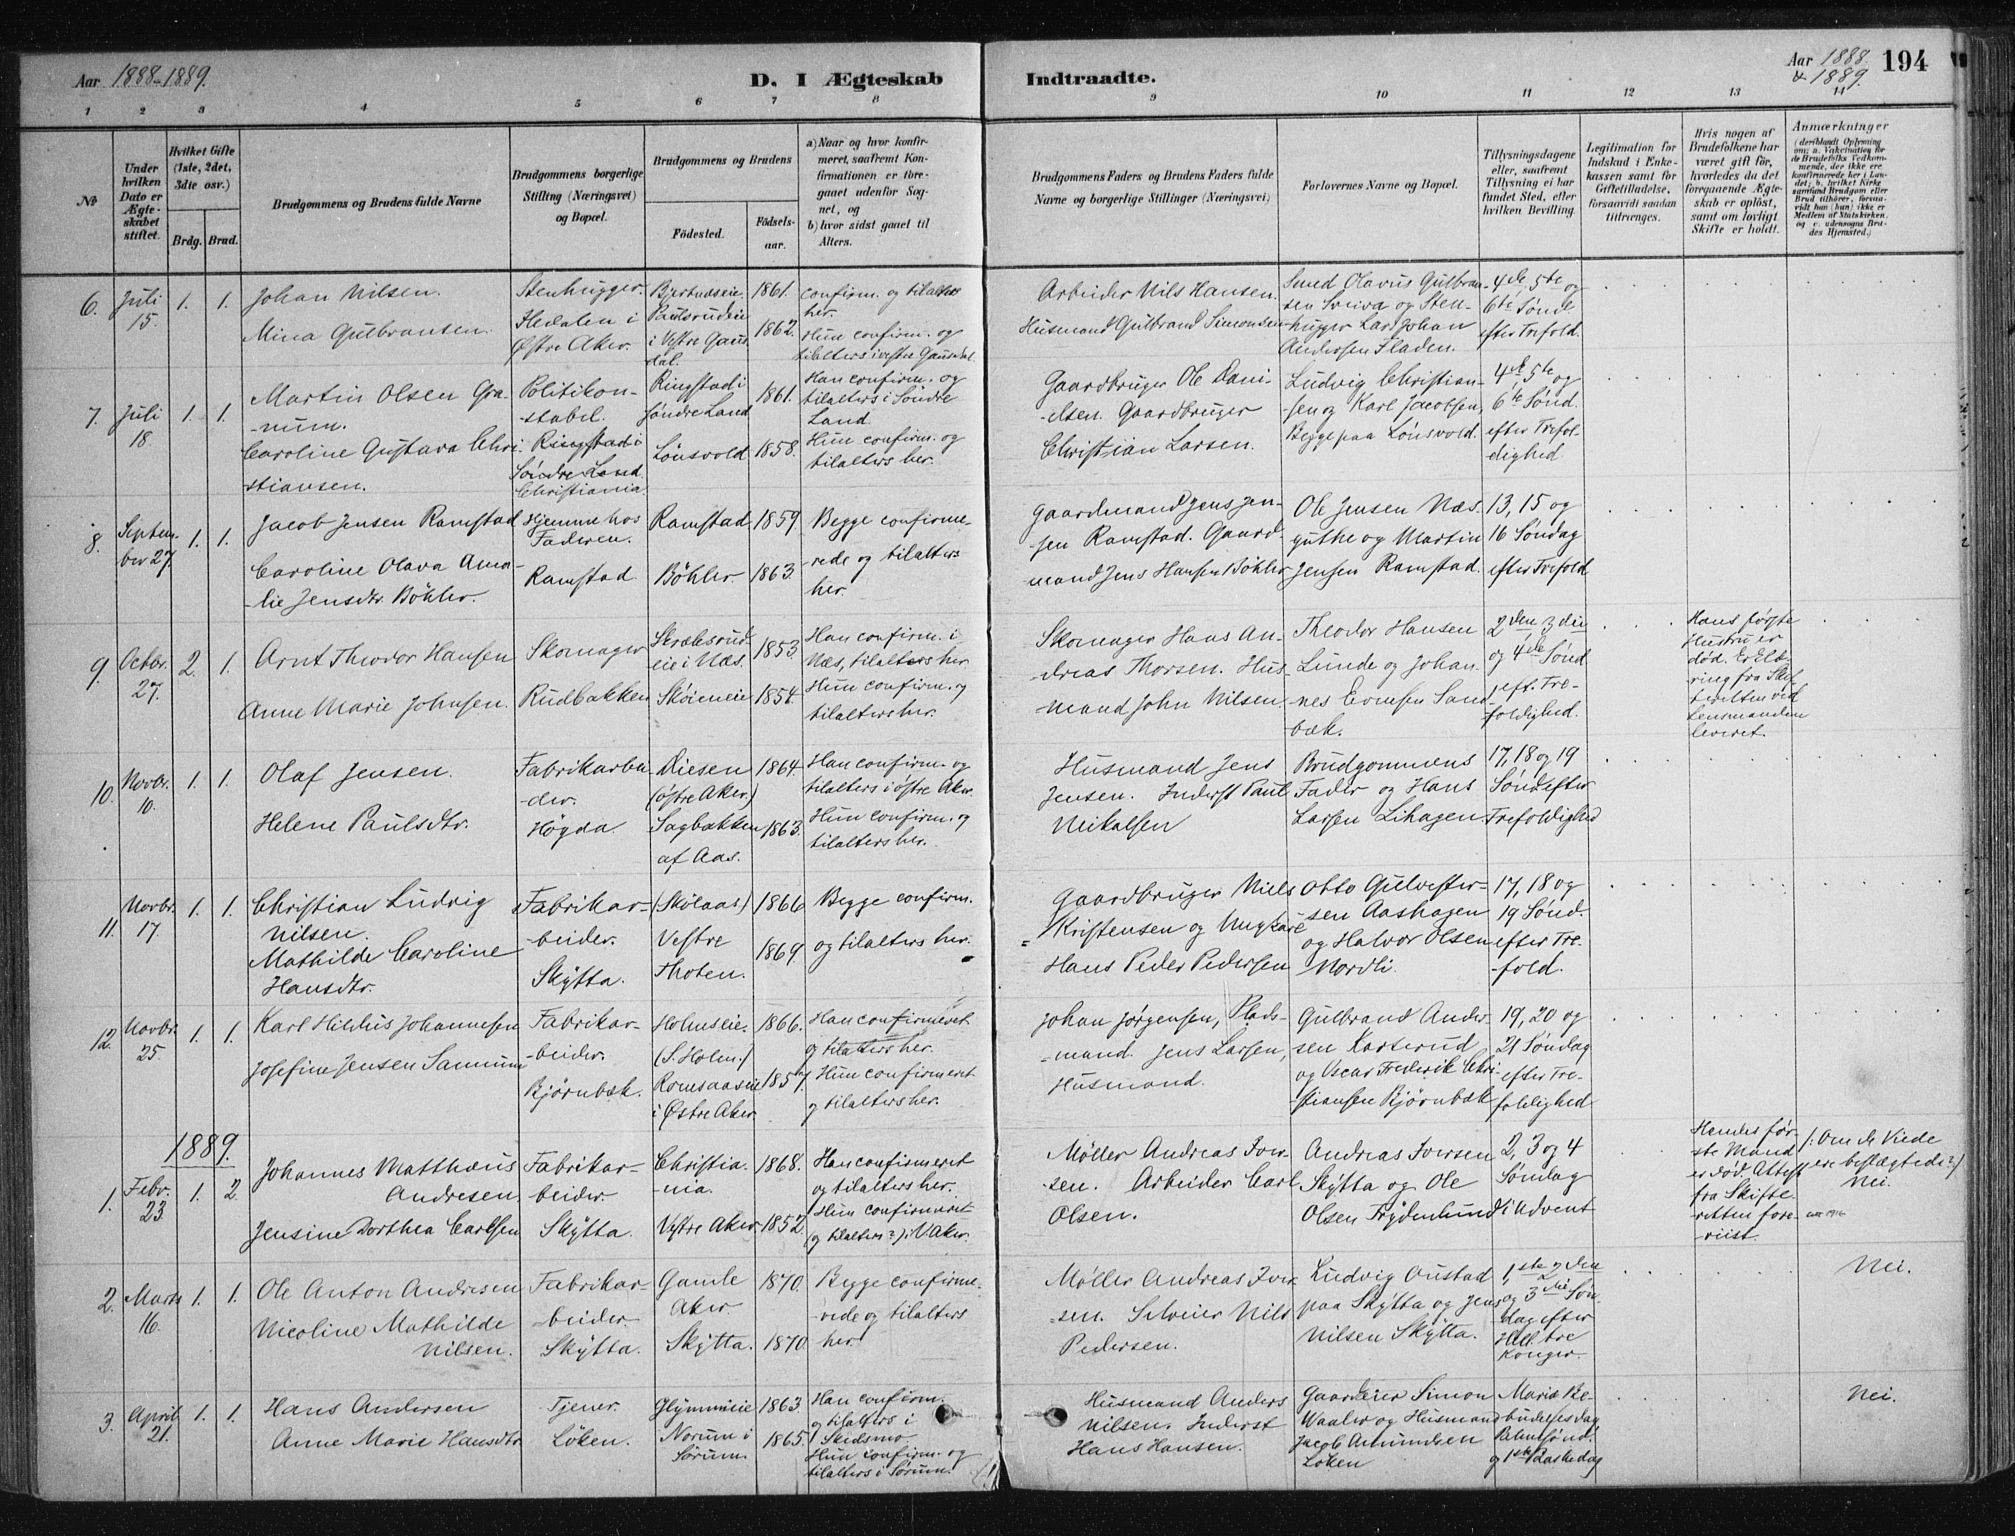 Aar 1888-1889.
D. I Ægteskab
Indtraadte.
Aar 1888 & 1889.
194
1 2 3 4 5 6 7 8 9 10 11 12 13 14
№
Under hvilken Dato er Ægteskabet stiftet.
Hvilket Gifte (1ste, 2det, 3die osv.)
Brdg. Brud.
Brudgommens og Brudens fulde Navne
Brudgommens borgerlige Stilling (Næringsvei) og Bopæl.
Brudgommens og Brudens
Fødested.
Fødselsaar.
a) Naar og hvor konfirmeret, saafremt Konfirmationen er foregaaet udenfor Sognet, og
b) hvor sidst gaaet til Alters.
Brudgommens Faders og Brudens Faders fulde Navne og borgerlige Stillinger (Næringsvei)
Forlovernes Navne og Bopæl.
Tillysningsdagene eller, saafremt Tillysning ei har fundet Sted, efter hvilken Bevilling.
Legitimation for Indskud i Enkekassen samt for Giftetilladelse, forsaavidt saadan tiltrænges.
Hvis nogen af Brudefolkene har været gift før, hvorledes da det foregaaende Ægteskab er opløst, samt om lovligt Skifte er holdt.
Anmærkninger
6. Juli 15. 1. 1.
Johan Nilsen.
Mina Gulbransen.
Stenhugger.
Hedalen i
Østre Aker.
Paulsrudeie
i Vestre Gausdal.
1861.
1862.
confirm. og tilalters
her.
Hun confirm. og
tilalters i vestre Gausdal.
Arbeider Nils Hansen.
Husmand Gulbrand Simonsen
Smed Olavus Gulbransen
og Stenhugger
Lars Johan
Andersen Fladen.
4de, 5te og
6te Sønd.
efter Trefold.
7. Juli 18. 1. 1.
Martin Olsen Granum.
Caroline Gustava Christiansen.
Politikonstabel.
Ringstad i
Søndre Land
Christiania
Ringstad i
Søndre Land
Lønsvold
1861.
1858.
Han confirm. og
tilalters i Søndre
Land
Hun confirm. og
tilalters her.
Gaardbruger Ole Danielsen.
Gaardbruger
Christian Larsen.
Ludvig Christiansen
og Karl Jacobsen,
Begge paa Lønsvold.
4de, 5te og
6te Sønd.
efter Trefoldighed
8. September 27. 1. 1.
Jacob Jensen Ramstad
Caroline Olava Amalie
Jensdtr. Bøhler.
Hjemme hos
Faderen.
Ramstad.
Ramstad
Bøhler
1859.
1863.
Begge confirmerede
og tilalters
her.
Gaardmand Jens Jensen
Ramstad. Gaardmand
Jens Hansen Bøhler
Ole Jensen Næsguthe
og Martin
Jensen Ramstad.
13, 15 og
16 Søndag
efter Trefold
9. Octbr. 27. 2. 1.
Arnt Theodor Hansen
Anne Marie Johnsen.
Skomager
Rudbakken
Skræbsrudeie
i Næs.
Skøieneie
1853.
1854.
Han confirm. i
Næs, tilalters her.
Hun confirm. og
tilalters her.
Skomager Hans Andreas
Thorsen. Husmand
John Nilsen
Theodor Hansen
Lunde og Johannes
Evensen Sandbæk.
2den 3die
og 4de Sønd.
eft. Trefoldighed.
Hans første
Hustru er
død. Erklæring
fra Skifteretten
ved
Lensmanden
leveret.
10. Novbr. 10. 1. 1.
Olaf Jensen.
Helene Paulsdtr.
Fabrikarbeider.
Høgda.
Diesen
(østre Aker.)
Sagbakken
af Aas.
1864.
1863.
Han confirm. og
tilalters i østre Aker.
Hun confirm. og
tilalters her.
Husmand Jens
Jensen. Inderst Paul
Mikalsen
Brudgommens
Fader og Hans
Larsen Lihagen
17, 18 og 19
Sønd. efter
Trefoldighed
11. Novbr. 17. 1. 1.
Christian Ludvig
Nilsen.
Mathilde Caroline
Hansdtr.
Fabrikarbeider.
Skÿtta.
(Skølaas)
Vestre
Thoten.
1866
1869.
Begge confirm.
og tilalters her.
Gaardbruger Niels
Kristensen og Ungkarl
Hans Peder Pedersen
Otto Gulvestersen
Aashagen
og Halvor Olsen
Nordli.
17, 18 og
19 Sønd.
efter Trefold.
12. Novbr. 25. 1. 1.
Karl Hildus Johannesen
Josefine Jensen Sannum
Fabrikarbeider.
Bjørnbæk.
Holmseie.
(S. Holm.)
Romsaaseie
i Østre Aker.
1866.
Han confirmeret
og tilalters her.
Hun confirmeret
og tilalters her.
Johan Jørgensen, Pladsmand.
Jens Larsen,
Husmand.
Gulbrand Andersen
Karterud
og Oscar Frederik Christiansen
Bjørnbæk
19, 20 og
21 Søndag
efter Trefoldighed
1889.
1. Febr. 23. 1. 2.
Johannes Matthæus
Andresen
Jensine Dorthea Carlsen
Fabrikarbeider
Skÿtta.
Christiania.
Vestre Aker
1868.
1852.
Han confirmeret
og tilalters her.
Hun confirmeret
(og tilalters?) i V. Aker.
Møller Andreas Iversen.
Arbeider Carl
Olsen.
Andreas Iversen
Skÿtta og Ole
Olsen Frydenlund
2, 3 og 4
Søndag
i Advent
Hendes første
Mand
er død. Attest
fra Skifteretten
forevist.
/: Om de Viede
ere beslægtede?:/
Nei.
2. Marts 16. 1. 1.
Ole Anton Andresen
Nicoline Mathilde
Nilsen.
Fabrikarbeider
Skÿtta.
Gamle
Aker
Skÿtta.
1870.
1870.
Begge confirmerede
og tilalters
her.
Møller Andreas Iversen.
Selveier Nils
Pedersen.
Ludvig Oustad
paa Skÿtta og Jens
Nilsen Skÿtta.
1ste 2den
og 3die Søndag
efter
Hell. tre
Konger.
Nei.
3. April 21. 1. 1.
Hans Andersen
Anne Marie Hansdtr.
Tjener.
Løken.
Glymmieie
Norum i
Sørum.
1863
1865.
Han confirm.
og tilalters i
Skedsmo
Hun confirm. og
tilalters i Sørum.
Husmand Anders
Nilsen. Inderst
Hans Hansen.
Gaardeier Simon
Waaler og Husmand
Jacob Amundsen
Løken
Mariæ Bebudelsesdag
Palmesønd.
og 1ste Paaskedag
Nei.